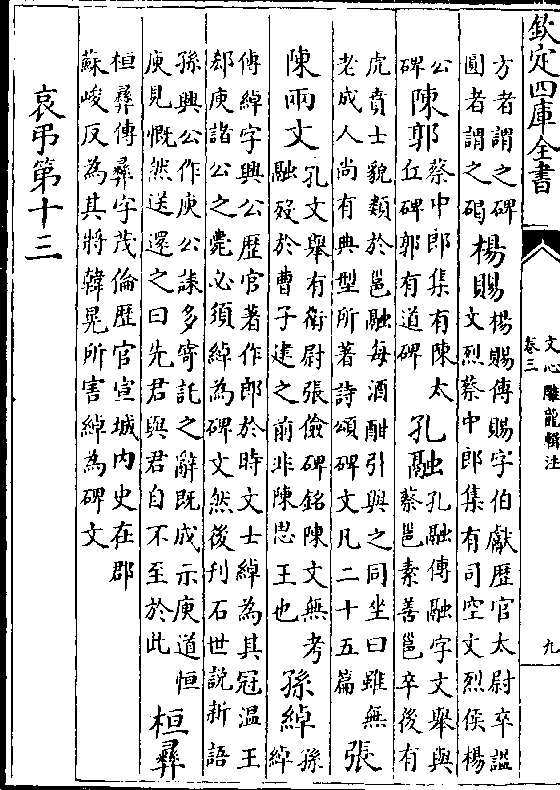 欽定四庫全書
文心雕龍輯注
卷三
九
方者謂之碑
圓者謂之碣
楊賜
楊賜傳賜字伯獻歷官太尉卒諡
文烈蔡中郎集有司空文烈侯楊
公
碑
陳郭
蔡中郎集有陳太
丘碑郭有道碑
孔融
孔融傳融字文舉與
蔡邕素善邕卒後有
虎賁士貌類於邕融每酒酣引與之同坐曰雖無
老成人尚有典型所著詩頌碑文凡二十五篇
張
陳兩文
孔文舉有衛尉張儉碑銘陳文無考
融歿於曹子建之前非陳思王也
孫綽
孫
綽
傳綽字興公歷官著作郎於時文士綽為其冠溫王
郄庾諸公之薨必須綽為碑文然後刊石世說新語
孫興公作庾公誄多寄託之辭既成示庾道恒
庾見慨然送還之曰先君與君自不至於此
桓彝
桓彝傳彝字茂倫歷官宣城內史在郡
蘇峻反為其將韓晃所害綽為碑文
哀弔第十三